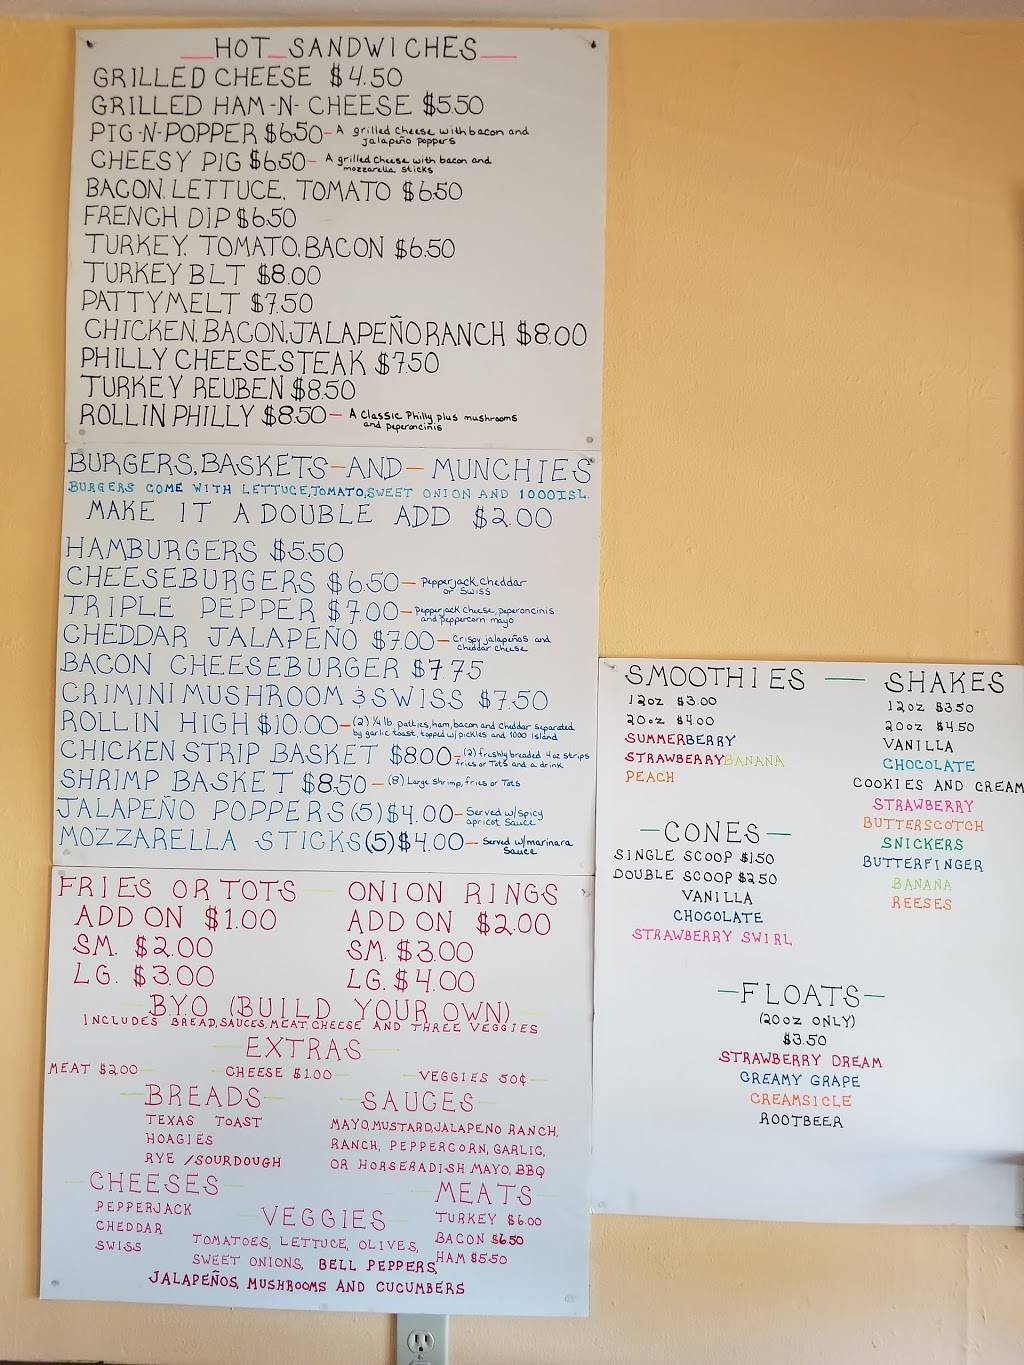 HOT SANDWICHES
GRILLED CHEESE $4.50
GRILLED HAM-N-CHEESE $5.50
PIG-N-POPPER $6.50 - A grilled cheese with bacon and
jalapeño poppers
CHEESY PIG $6.50 - A grilled cheese with bacon and
mozzarella sticks
BACON, LETTUCE, TOMATO $6.50
FRENCH DIP $6.50
TURKEY, TOMATO, BACON $6.50
TURKEY BLT $8.00
PATTYMELT $7.50
CHICKEN, BACON, JALAPEÑO RANCH $8.00
PHILLY CHEESESTEAK $7.50
TURKEY REUBEN $8.50
ROLLIN PHILLY $8.50 - A Classic Philly plus mushrooms
and peperoncinis
BURGERS, BASKETS - AND - MUNCHIES
BURGERS COME WITH LETTUCE, TOMATO, SWEET ONION AND 1000 ISL.
MAKE IT A DOUBLE ADD $2.00
HAMBURGERS $5.50
CHEESEBURGERS $6.50 - Pepperjack, Cheddar
or Swiss
TRIPLE PEPPER $7.00 - Pepperjack Cheese, peperoncinis
and peppercorn mayo
CHEDDAR JALAPEÑO $7.00 - Crispy jalapeños and
cheddar cheese
BACON CHEESEBURGER $7.75
CRIMINI MUSHROOM & SWISS $7.50
ROLLIN HIGH $10.00 - (2) 1/4 lb. patties, ham, bacon and cheddar separated
by garlic toast, topped w/ pickles and 1000 Island
CHICKEN STRIP BASKET $8.00 - (2) freshly breaded 4oz strips
fries or Tots and a drink
SHRIMP BASKET $8.50 - (8) Large Shrimp, fries or Tots
JALAPEÑO POPPERS (5) $4.00 - Served w/ Spicy
apricot Sauce
MOZZARELLA STICKS (5) $4.00 - Served w/ marinara
Sauce
FRIES OR TOTS
ADD ON $1.00
SM. $2.00
LG. $3.00
ONION RINGS
ADD ON $2.00
SM. $3.00
LG. $4.00
B.Y.O (BUILD YOUR OWN)
INCLUDES BREAD, SAUCES, MEAT, CHEESE AND THREE VEGGIES
EXTRAS
MEAT $2.00 CHEESE $1.00 VEGGIES 50¢
BREADS
TEXAS TOAST
HOAGIES
RYE / SOURDOUGH
SAUCES
MAYO, MUSTARD, JALAPENO RANCH,
RANCH, PEPPERCORN, GARLIC,
OR HORSERADISH MAYO, BBQ
CHEESES
PEPPERJACK
CHEDDAR
SWISS
MEATS
TURKEY $6.00
BACON $6.50
HAM $5.50
VEGGIES
TOMATOES, LETTUCE, OLIVES,
SWEET ONIONS, BELL PEPPERS,
JALAPEÑOS, MUSHROOMS AND CUCUMBERS
SMOOTHIES
12oz $3.00
20oz $4.00
SUMMERBERRY
STRAWBERRY BANANA
PEACH
SHAKES
12oz $3.50
20oz $4.50
VANILLA
CHOCOLATE
COOKIES AND CREAM
STRAWBERRY
BUTTERSCOTCH
SNICKERS
BUTTERFINGER
BANANA
REESES
-CONES-
SINGLE SCOOP $1.50
DOUBLE SCOOP $2.50
VANILLA
CHOCOLATE
STRAWBERRY SWIRL
-FLOATS-
(20oz ONLY)
$3.50
STRAWBERRY DREAM
CREAMY GRAPE
CREAMSICLE
ROOTBEER